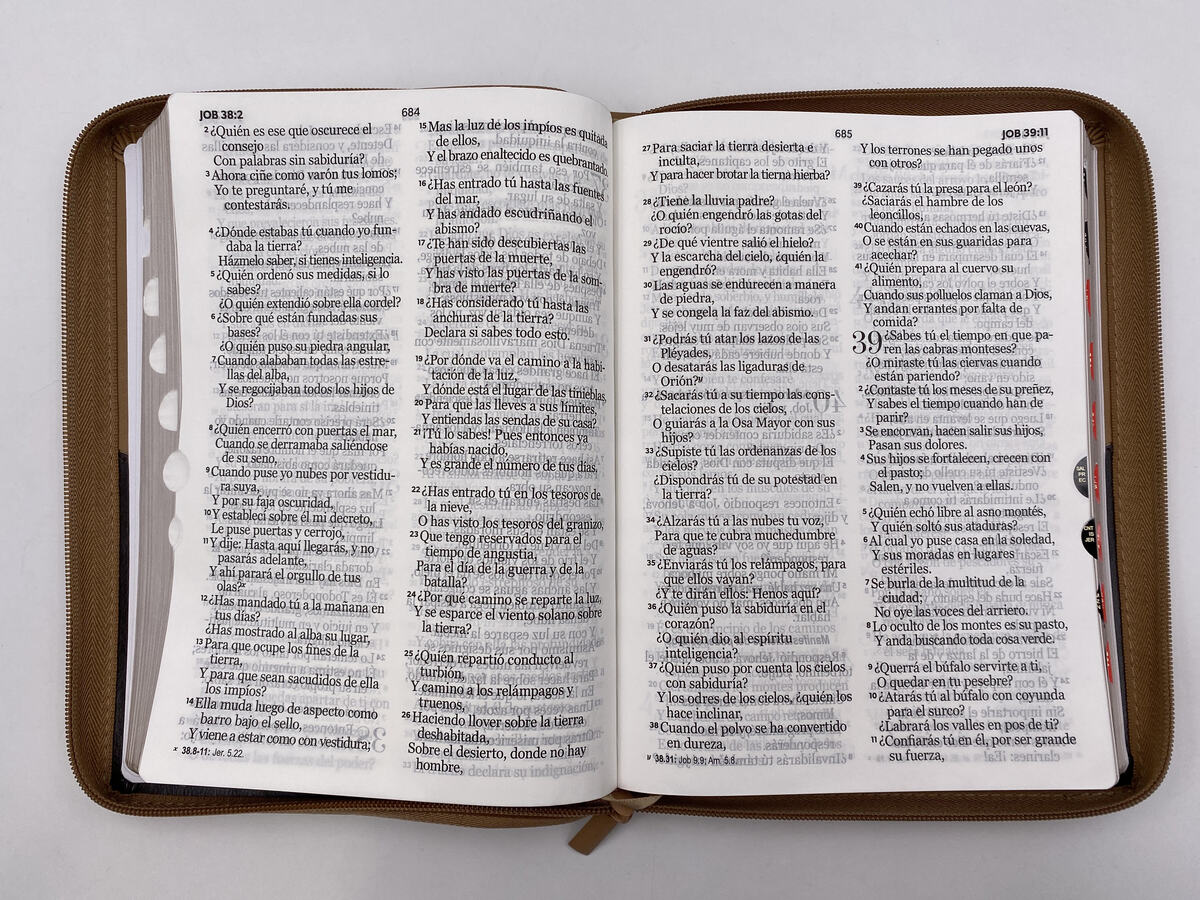 JOB 38:2
684
2 ¿Quién es ese que oscurece el
consejo
Con palabras sin sabiduría?
3 Ahora ciñe como varón tus lomos;
Yo te preguntaré, y tú me
contestarás.
4 ¿Dónde estabas tú cuando yo fun-
daba la tierra?
Házmelo saber, si tienes inteligencia.
5 ¿Quién ordenó sus medidas, si lo
sabes?
¿O quién extendió sobre ella cordel?
6 ¿Sobre qué están fundadas sus
bases?
¿O quién puso su piedra angular,
7 Cuando alababan todas las estre-
llas del alba,
Y se regocijaban todos los hijos de
Dios?
8 ¿Quién encerró con puertas el mar,
Cuando se derramaba saliéndose
de su seno,
9 Cuando puse yo nubes por vestidu-
ra suya,
Y por su faja oscuridad,
10 Y establecí sobre él mi decreto,
Le puse puertas y cerrojo,
11 Y dije: Hasta aquí llegarás, y no
pasarás adelante,
Y ahí parará el orgullo de tus
olas?x
12 ¿Has mandado tú a la mañana en
tus días?
¿Has mostrado al alba su lugar,
13 Para que ocupe los fines de la
tierra,
Y para que sean sacudidos de ella
los impíos?
14 Ella muda luego de aspecto como
barro bajo el sello,
Y viene a estar como con vestidura;
x 38.8-11: Jer. 5.22.
15 Mas la luz de los impíos es quitada
de ellos,
Y el brazo enaltecido es quebrantado.
16 ¿Has entrado tú hasta las fuentes
del mar,
Y has andado escudriñando el
abismo?
17 ¿Te han sido descubiertas las
puertas de la muerte,
Y has visto las puertas de la som-
bra de muerte?
18 ¿Has considerado tú hasta las
anchuras de la tierra?
Declara si sabes todo esto.
19 ¿Por dónde va el camino a la habi-
tación de la luz,
Y dónde está el lugar de las tinieblas,
20 Para que las lleves a sus límites,
Y entiendas las sendas de su casa?
21 ¡Tú lo sabes! Pues entonces ya
habías nacido,
Y es grande el número de tus días.
22 ¿Has entrado tú en los tesoros de
la nieve,
O has visto los tesoros del granizo,
23 Que tengo reservados para el
tiempo de angustia,
Para el día de la guerra y de la
batalla?
24 ¿Por qué camino se reparte la luz,
Y se esparce el viento solano sobre
la tierra?
25 ¿Quién repartió conducto al
turbión,
Y camino a los relámpagos y
truenos,
26 Haciendo llover sobre la tierra
deshabitada,
Sobre el desierto, donde no hay
hombre,
685
JOB 39:11
27 Para saciar la tierra desierta e
inculta,
Y para hacer brotar la tierna hierba?
28 ¿Tiene la lluvia padre?
¿O quién engendró las gotas del
rocío?
29 ¿De qué vientre salió el hielo?
Y la escarcha del cielo, ¿quién la
engendró?
30 Las aguas se endurecen a manera
de piedra,
Y se congela la faz del abismo.
31 ¿Podrás tú atar los lazos de las
Pléyades,
O desatarás las ligaduras de
Orión?y
32 ¿Sacarás tú a su tiempo las cons-
telaciones de los cielos,
O guiarás a la Osa Mayor con sus
hijos?
33 ¿Supiste tú las ordenanzas de los
cielos?
¿Dispondrás tú de su potestad en
la tierra?
34 ¿Alzarás tú a las nubes tu voz,
Para que te cubra muchedumbre
de aguas?
35 ¿Enviarás tú los relámpagos, para
que ellos vayan?
¿Y te dirán ellos: Henos aquí?
36 ¿Quién puso la sabiduría en el
corazón?
¿O quién dio al espíritu
inteligencia?
37 ¿Quién puso por cuenta los cielos
con sabiduría?
Y los odres de los cielos, ¿quién los
hace inclinar,
38 Cuando el polvo se ha convertido
en dureza,
y 38.31: Job 9.9; Am. 5.8.
Y los terrones se han pegado unos
con otros?
39 ¿Cazarás tú la presa para el león?
¿Saciarás el hambre de los
leoncillos,
40 Cuando están echados en las cuevas,
O se están en sus guaridas para
acechar?
41 ¿Quién prepara al cuervo su
alimento,
Cuando sus polluelos claman a Dios,
Y andan errantes por falta de
comida?
39 ¿Sabes tú el tiempo en que pa-
ren las cabras monteses?
¿O miraste tú las ciervas cuando
están pariendo?
2 ¿Contaste tú los meses de su preñez,
Y sabes el tiempo cuando han de
parir?
3 Se encorvan, hacen salir sus hijos,
Pasan sus dolores.
4 Sus hijos se fortalecen, crecen con
el pasto;
Salen, y no vuelven a ellas.
5 ¿Quién echó libre al asno montés,
Y quién soltó sus ataduras?
6 Al cual yo puse casa en la soledad,
Y sus moradas en lugares
estériles.
7 Se burla de la multitud de la
ciudad;
No oye las voces del arriero.
8 Lo oculto de los montes es su pasto,
Y anda buscando toda cosa verde.
9 ¿Querrá el búfalo servirte a ti,
O quedar en tu pesebre?
10 ¿Atarás tú al búfalo con coyunda
para el surco?
¿Labrará los valles en pos de ti?
11 ¿Confiarás tú en él, por ser grande
su fuerza,
SAL
PR
EC
CNT
IS
JER